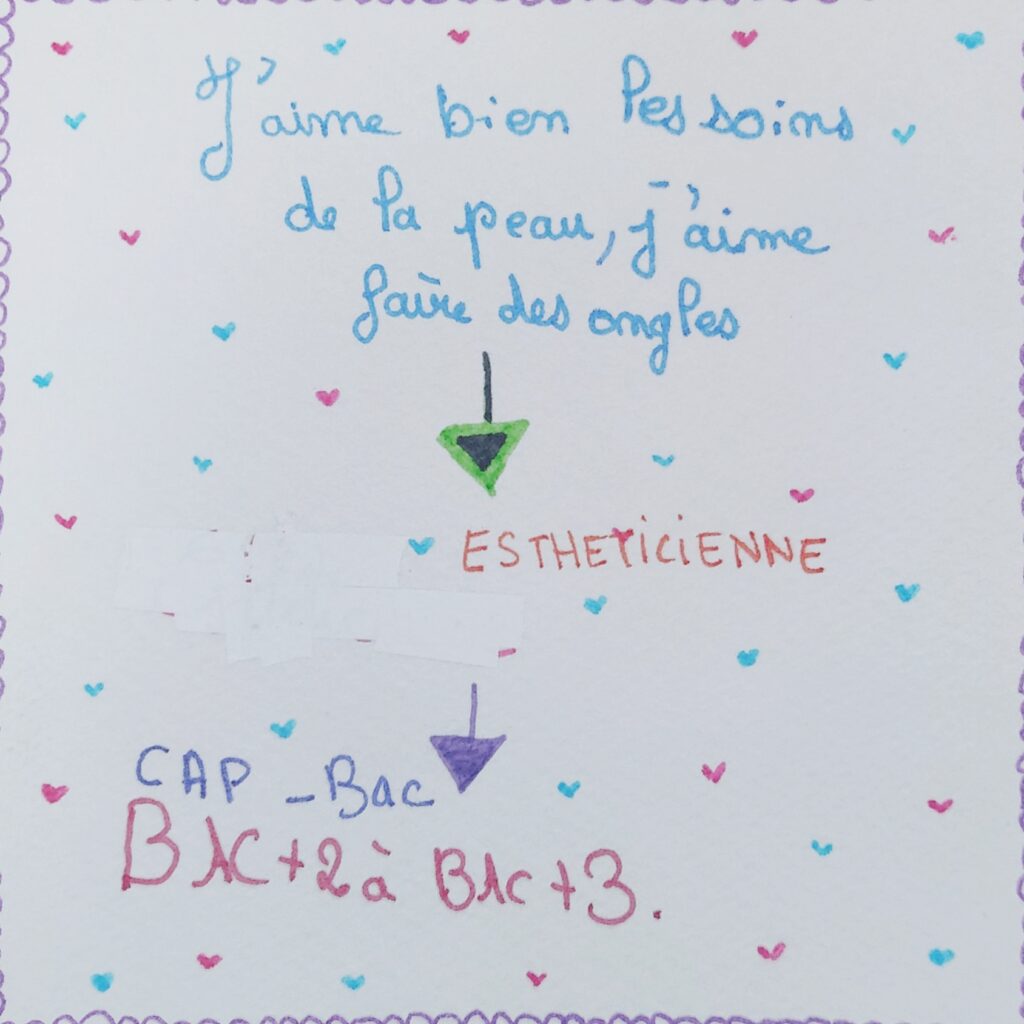 J'aime bien les soins
de la peau, j'aime
faire des ongles
ESTHETICIENNE
CAP - Bac
BAC+2 à BAC+3.